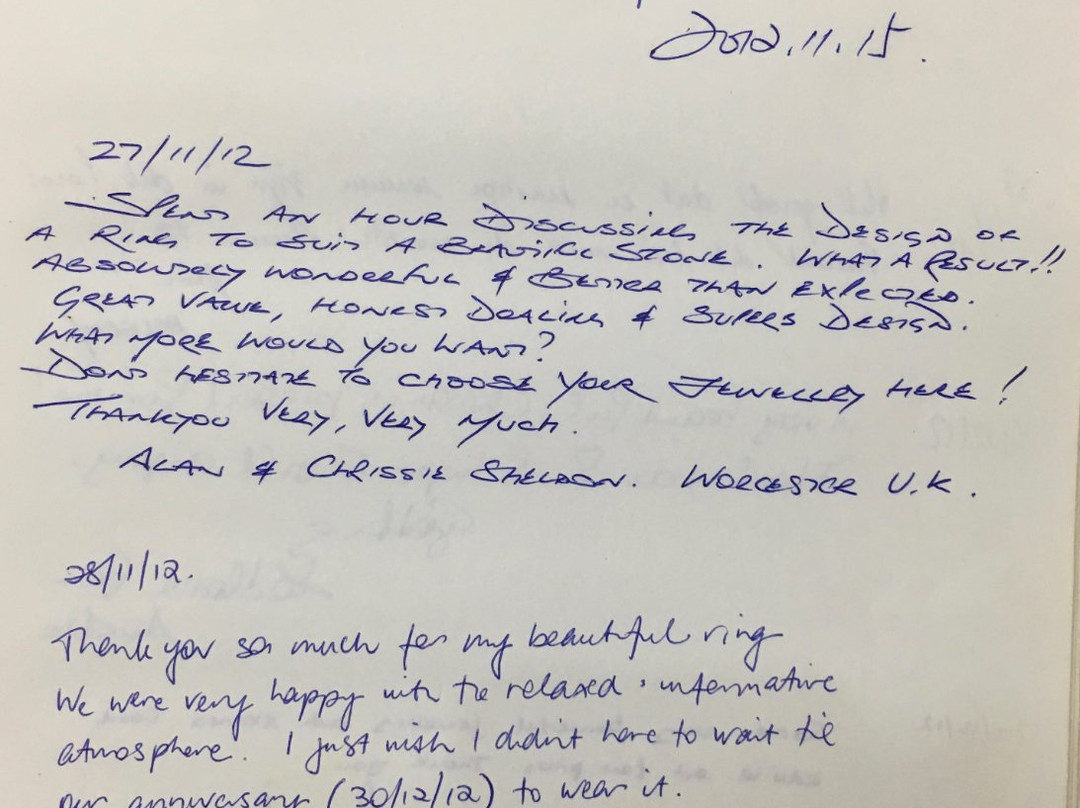 2012.11.15.
27/11/12
SPENT AN HOUR DISCUSSING THE DESIGN OF
A RING TO SUIT A BEAUTIFUL STONE. WHAT A RESULT!!
ABSOLUTELY WONDERFUL & BETTER THAN EXPECTED.
GREAT VALUE, HONEST DEALING & SUPERB DESIGN.
WHAT MORE WOULD YOU WANT?
DONT HESITATE TO CHOOSE YOUR JEWELLERY HERE!
THANKYOU VERY, VERY MUCH.
ALAN & CHRISSIE SHELDON. WORCESTER U.K.
28/11/12.
Thank you so much for my beautiful ring
We were very happy with the relaxed & informative
atmosphere. I just wish I didn't have to wait til
our anniversary (30/12/12) to wear it.